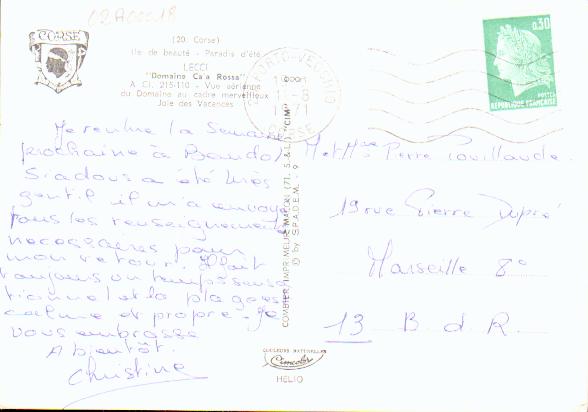 02A00018
CORSE
(20. Corse)
Ile de beauté - Paradis d'été
LECCI
"Domaine Ca'a Rossa"
A Cl. 215-110 - Vue aérienne
du Domaine au cadre merveilleux
Joie des Vacances
PORTO-VECCHIO
1971
CORSE
0,30
POSTES
REPUBLIQUE FRANÇAISE
Je rentre la Semaine
prochaine à Bandol
a été très
gentil il m'a envoyé
tous les renseignements
necessaires pour
mon retour. Il fait
toujours un temps sensa
tionnel et la plage est
calme et propre. Je
vous embrasse
A bientôt.
Christine
COMBIER IMPR. MEUR MACON (71. S.&L.) "CIM"
© by S.P.A.D.E.M. - 9
M et Mme Pierre Pouillaude.
19 rue Pierre Dupré
Marseille 8e
13 B. d R.
COULEURS NATURELLES
Cimcolor
HELIO